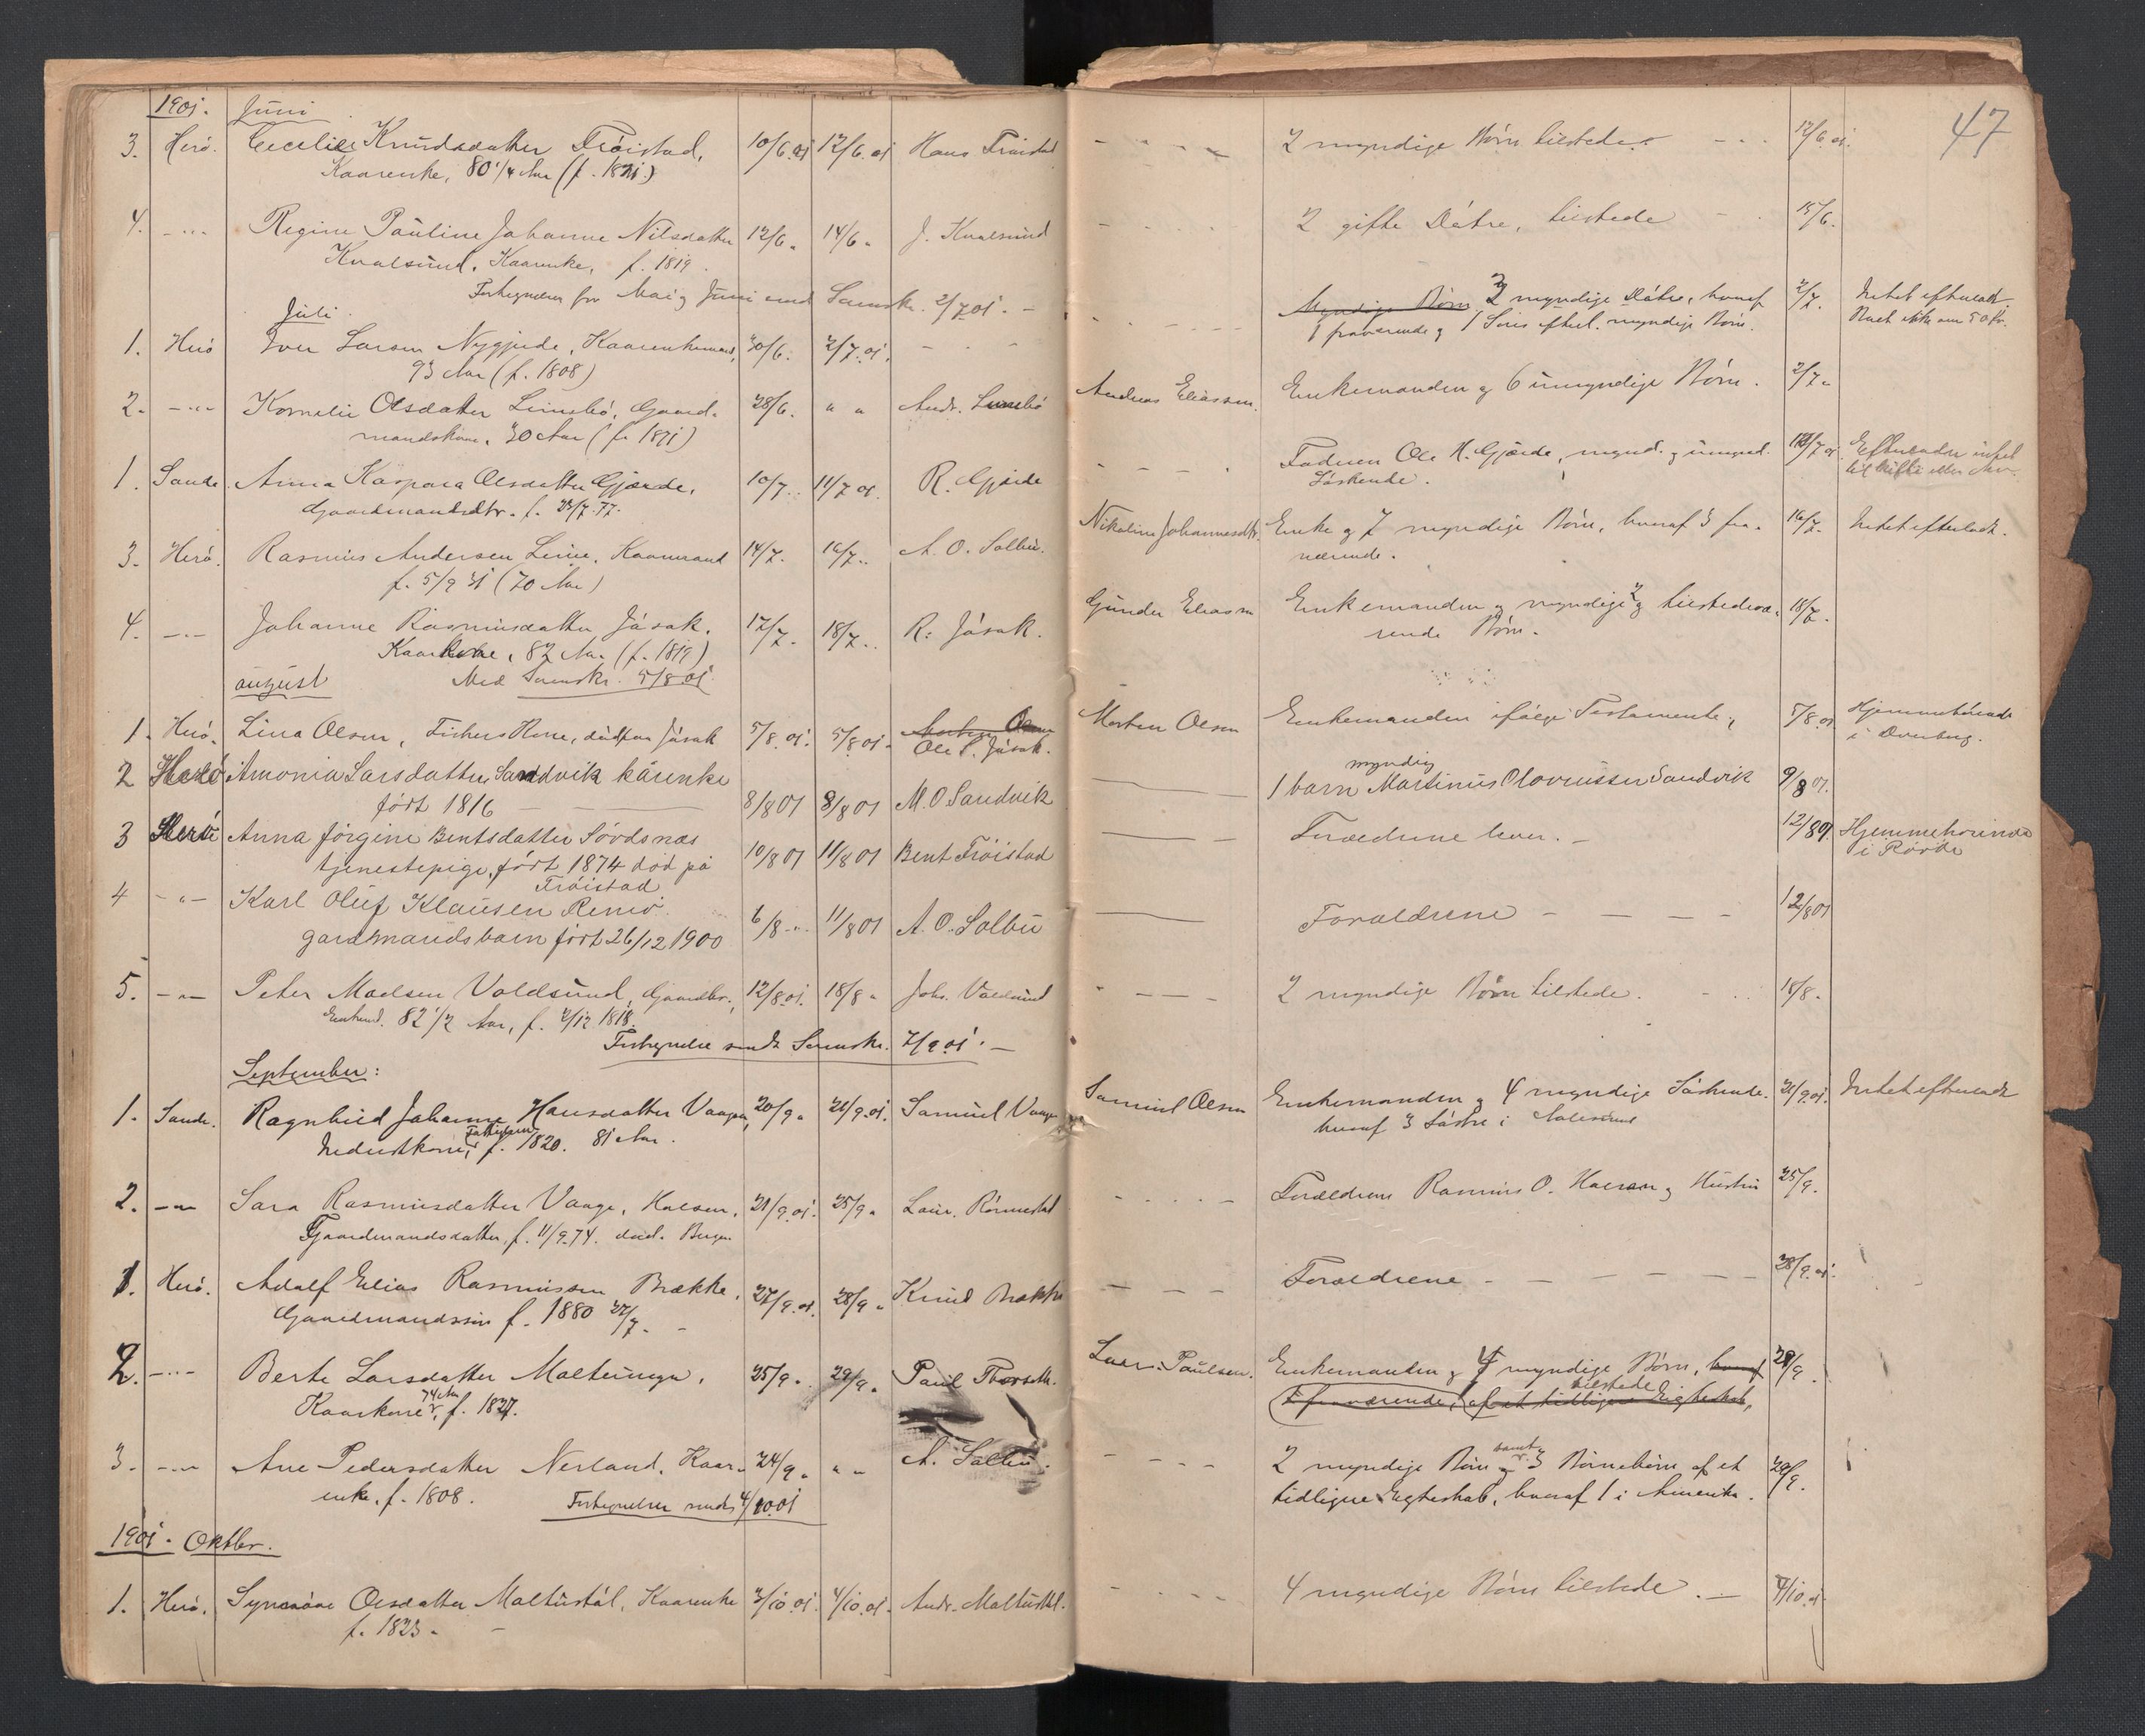 47
1901. Juni
3. Herö. Cecilie Knudsdatter Fröistad, 10/6.01 12/6.01 Hans Fröistad - - - - 2 myndige Börn tilstede. - - - 12/6.01.
Kaarenke, 80 1/4 Aar (f. 1821.)
4. - " - Regine Pauline Johanne Nilsdatter 12/6. 14/6. J. Kvalsund - - - - 2 gifte Döttre, tilstede - - 15/6.
Kvalsund, Kaarenke, f. 1819.
Fortegnelser for Mai og Juni sendt Sorenskr. 2/7 01. -
Juli.
1. Herö Iver Larsen Nygjerde, Kaarenkemand, 30/6. 2/7.01. - - - Myndige Börn 2 myndige Döttre, hvoraf 2/7. Intet efterladt.
93 Aar (f. 1808) 1 fraværende og 1 Söns efterl. myndige Börn. Boet ikke over 50 Kr.
2. - " - Kornelie Olsdatter Leinebö, Gaard- 28/6. " " Andr. Leinebö Andreas Eliassen. Enkemanden og 6 umyndige Börn. 2/7.
mandskone, 30 Aar (f. 1871)
1. Sande. Anna Kaspara Olsdatter Gjærde, 10/7. 11/7 01. R. Gjerde - - - - Faderen Ole H. Gjærde, mynd. og umynd. 12/7 01
Gaardmandsdtr. f. 23/7.77. Söskende.
3. Herö. Rasmus Andersen Leine, Kaarmand 14/7. 16/7. A. O. Solbu. Nikoline Johannesdtr. Enke og 7 myndige Börn, hvoraf 3 fra- 16/7. Intet efterladt.
f. 5/9 31 (70 Aar) værende.
4. - " - Johanne Rasmusdatter Jösok. 17/7. 18/7. R. Jösok. Gunder Eliassen Enkemanden og myndige 2 tilstedevæ- 18/7.
Kaarkone, 82 Aar (f. 1819) rende Börn.
august Med Sorenskr. 5/8 01.
1. Herö. Lina Olsen, Fiskers Kone, död paa Jösok 5/8.01. 5/8 01. Morten Olsen Morten Olsen Enkemanden ifölge Testamente, 5/8.01 Hjemmehörende
Ole P. Jösok. i Overberg.
2 Herö Amonia Larsdatter Sandvik kårenke myndig
fört 1816 8/8 01 8/8 01 M. O Sandvik 1 barn Martinus Olovnusson Sandvik 9/8 01.
3 Herö Anna Jörgine Bentsdatter Sövdsnæs 10/8 01 11/8 01 Bent Fröistad Foreldrene lever. - 12/8 01. Hjemmehörende
tjenestepige, fört 1874 död på i Rovde
Fröistad
4 - " - Karl Oluf Klausen Remö 6/8 - 11/8 01 A. O. Solbu Foreldrene - - - - 12/8 01
gardmandsbarn fört 26/12 1900
5. - " - Peter Madsen Voldsund, Gaardbr. 12/8.01. 18/8. Johs. Voldsund - - - - 2 myndige Börn tilstede. - - 18/8.
Enkemd. 82 1/2 Aar, f. 2/12 1818.
Fortegnelse sendt Sorenskr. 7/9.01. -
September:
1. Sande. Ragnhild Johanne Hansdatter Vaagen, 20/9. 21/9.01. Samuel Vaage Samuel Olsen Enkemanden og 4 myndige Söskende. 21/9.01. Intet efterladt
Inderstkone, f. 1820. 81 Aar. hvoraf 3 Söstre i Aalesund
2. - " - Sara Rasmusdatter Vaage, Halsen, 21/9.01. 25/9. Laur. Rönnestad - - - - Foreldrene Rasmus O. Halsen og Hustru 25/9.
Gaardmandsdatter, f. 11/9.74. död i Bergen
1. Herö. Adolf Elias Rasmussen Brække, 27/9.01. 28/9. Knud Brække - - - Foreldrene - - - - - 28/9.01.
Gaardmandssön f. 1880 27/7.
2. - " - Berte Larsdatter Molteungen. 25/9. 29/9. Paul Thorseth. Lars Paulsen. Enkemanden og 4 myndige Börn, hvoraf 29/9.
74 Aar tilstede
Kaarkone, f. 1827. 1 fraværende, af et tidligere Egteskab,
3. - " - Ane Pedersdatter Nerland, Kaar- 24/9. " " A. Solbu. - - - - 2 myndige Börn samt 3 Börnebörn af et 29/9.
enke, f. 1808. Fortegnelser sendt 4/10 01 tidligere Egteskab, hvoraf 1 i Amerika.
1901. Oktbr.
1. Herö. Synnöve Olsdatter Moltustöl, Kaarenke 3/10.01. 4/10.01. Andr. Moltustöl. - - - - 4 myndige Börn tilstede. - 4/10.01
f. 1823. -